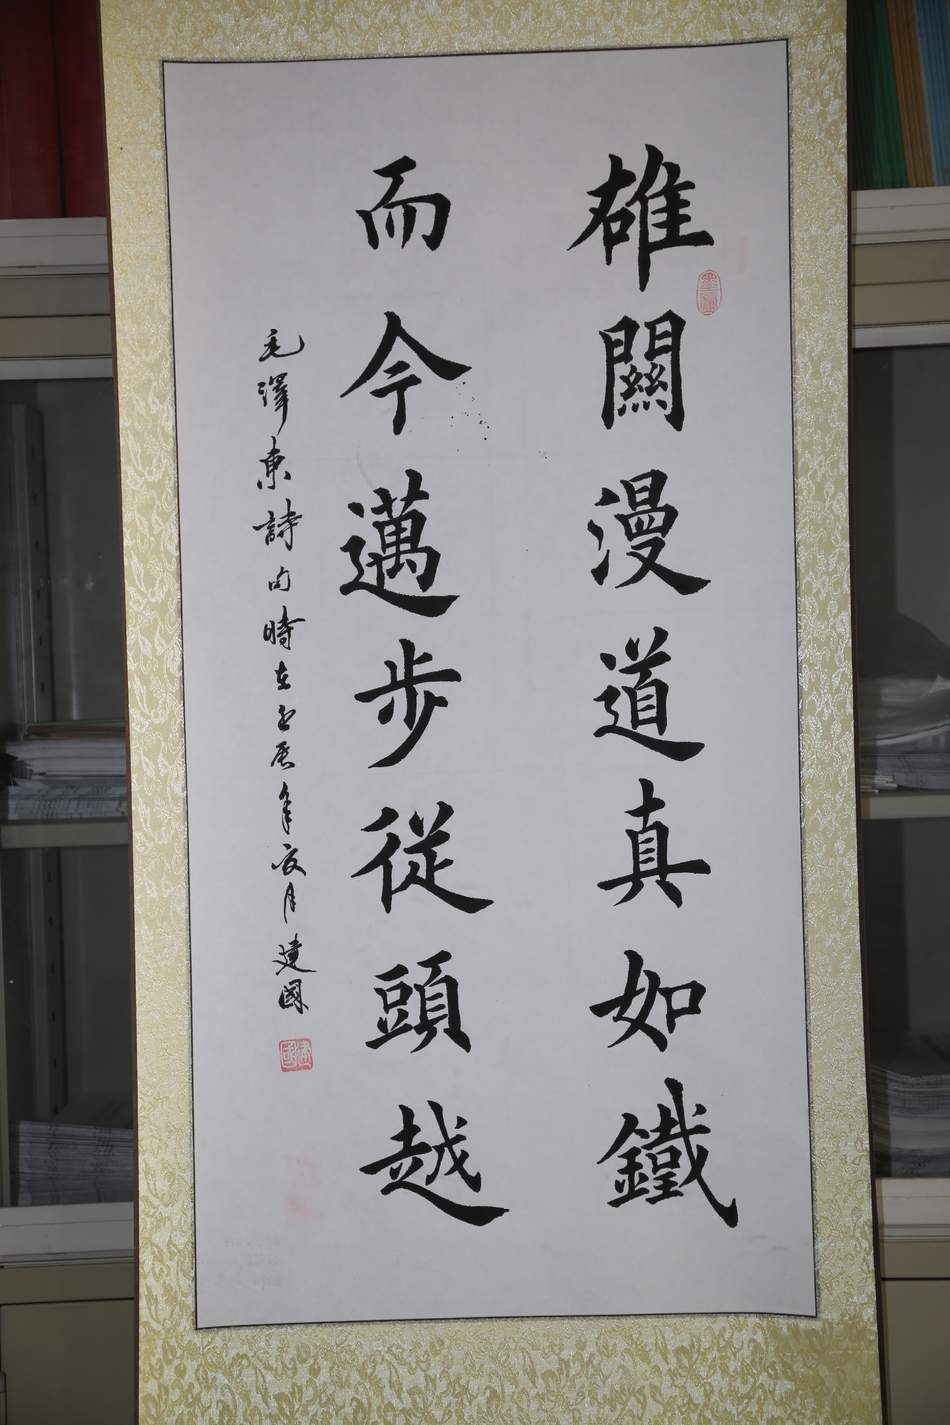 雄關漫道真如鐵
而今邁步從頭越
毛澤東詩句時在壬辰年夏月建國
建國